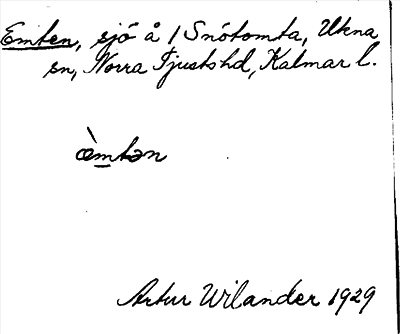 Emten, sjö å / Snótomta, Ukna
sn, Norra Tjusts hd, Kalmar l.
æ̀mtən
Artur Wilander 1929